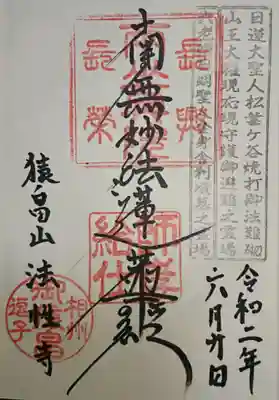 日蓮大聖人松葉ヶ谷焼打御法難砌
山王大権現応現守護御避難之霊場
長興
長榮
南無妙法蓮華経
師孝
給仕
令和二年
六月廿日
猿畠山 法性寺
相州
御猿畠
逗子